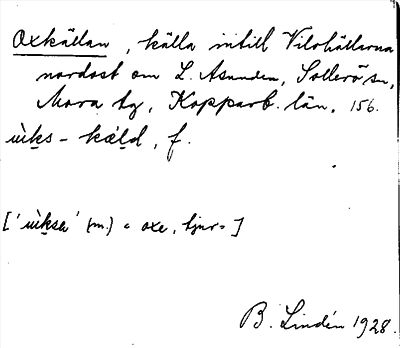 Oxkällan, källa intill Vilohällarna
nordost om L. Asunden, Sollerö sn,
Mora tg, Kopparb. län. 156.
ùi̯ks - kæld, f.
['ùi̯ksa' (m.) = oxe, tjur =]
B. Lindén 1928.